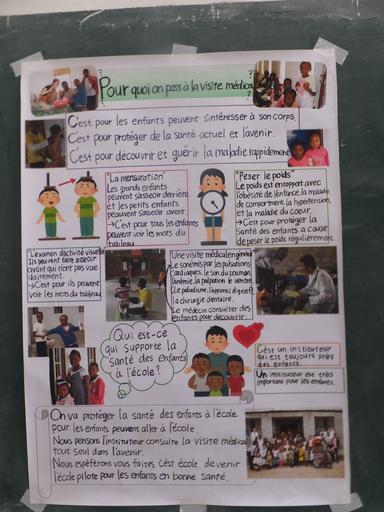 Pourquoi on pass à la visite médica
C'est pour les enfants peuvent s'intéresser à son corps,
C'est pour protéger de la santé actuel et l'avenir.
C'est pour découvrir et guérir la maladie rappidement
"La mensuration"
Les grands enfants
peuvent s'asseoir derrière
et les petits enfants
peauvent s'asseoir avant.
→C'est pour tous les enfants
peuvent voir les mots du
tableau
"Peser le poids"
Le poids est en rapport avec
l'obésité de l'enfance, la maladie
de comportment, la hypertension,
et la maladie du coeur.
→C'est pour protéger la
Santé des enfants à cause
de peser le poids régulièrement.
"L'examen d'activité visuelle"
Ils peuvent faire asseoir
avant qui n'ont pas vue
clairement.
→C'est pour ils peuvent
voir les mots du tableau.
Une visite médical général
Le sonémie par les pulsations
Cardiaques, le son du poumon,
l'anémie, la palpation le ventre
(Le paludisme, l'appareil digestif)
la chirurgie dentaire.
Le médecin consulter des
enfants pour découvrir.
Qui est-ce
qui supporte la
santé des enfants
à l'école?
C'est un instituteur
qui est toujours près
des enfants.
Un instituteur est très
important pour les enfants.
On va protéger la santé des enfants à l'école
pour les enfants peuvent aller à l'école.
Nous pensons l'instituteur consulte la visite médical
tout seul dans l'avenir.
Nous espérerons vous faites c'est école devenir
l'école pilote pour les enfants en bonne santé.